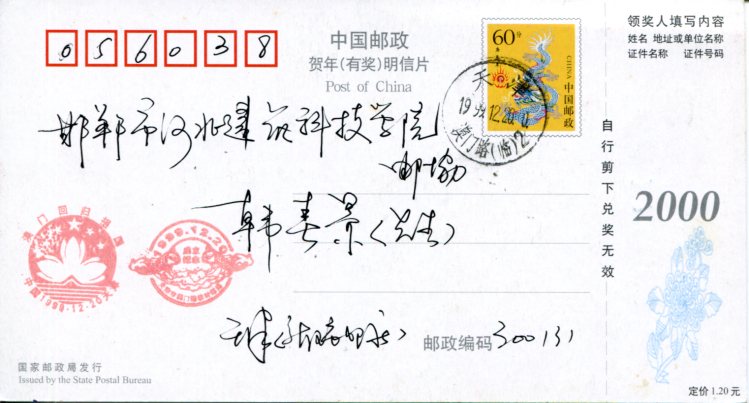 056038
中国邮政
贺年(有奖)明信片
Post of China
60分
CHINA
中国邮政
天津
1999.12.20
澳门路(临)2
领奖人填写内容
姓名 地址或单位名称
证件名称 证件号码
自行剪下兑奖无效
2000
邯郸市河北建筑科技学院
邮协
韩春景(先生)
澳门回归祖国
中国1999.12.20天津
1999.12.20
邮政编码300131
国家邮政局发行
Issued by the State Postal Bureau
定价1.20元